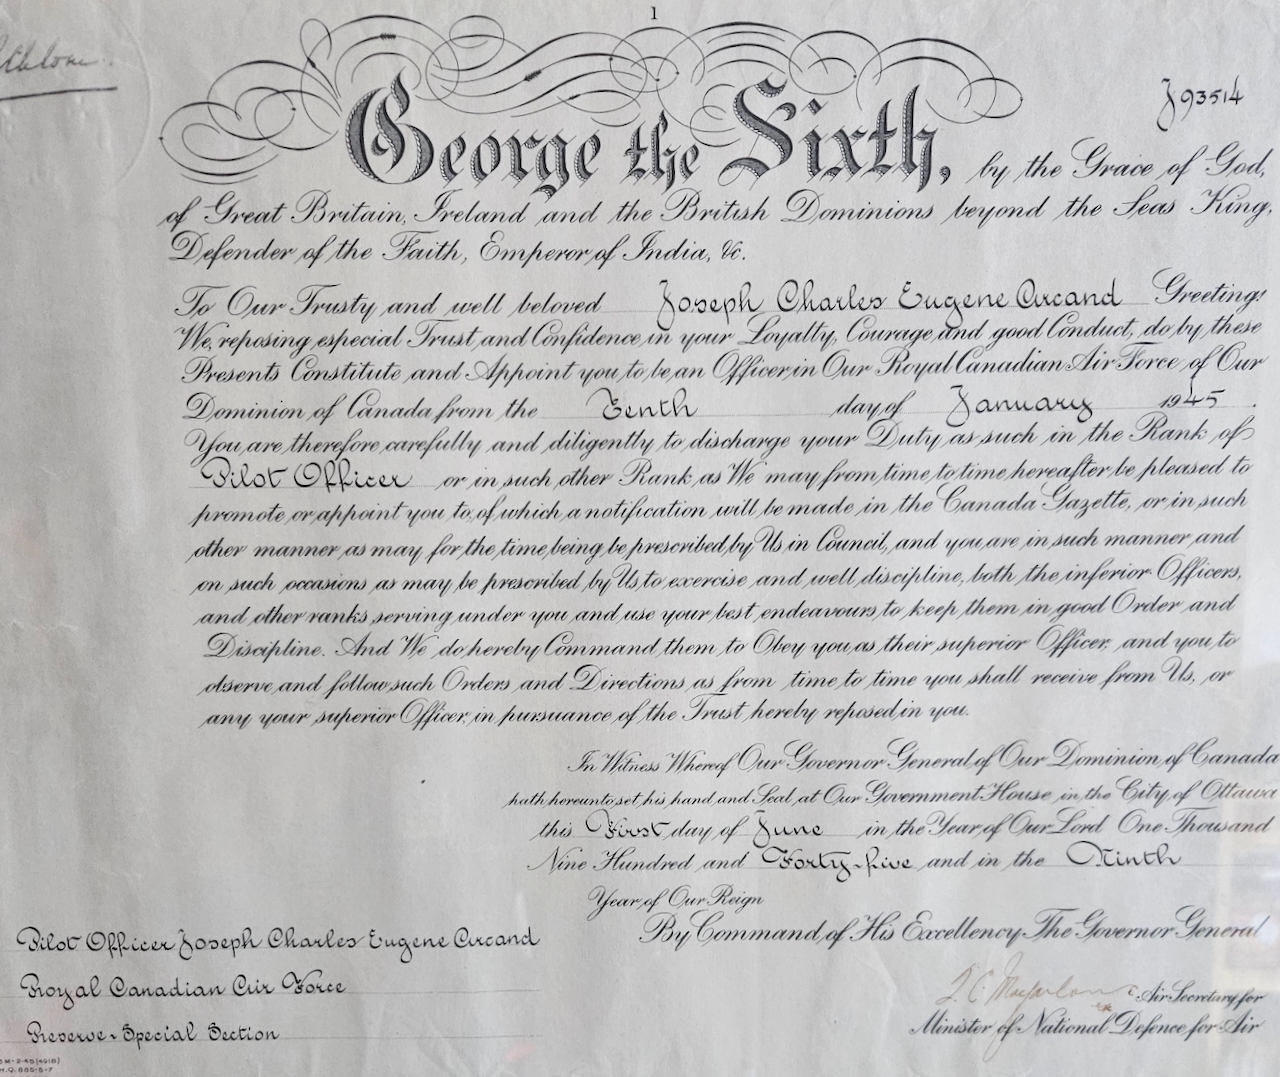 1
J93514
George the Sixth, by the Grace of God,
of Great Britain, Ireland and the British Dominions beyond the Seas King,
Defender of the Faith, Emperor of India, &c.
To Our Trusty and well beloved Joseph Charles Eugene Arcand Greeting:
We, reposing especial Trust and Confidence in your Loyalty, Courage and good Conduct, do by these
Presents Constitute and Appoint you to be an Officer in Our Royal Canadian Air Force of Our
Dominion of Canada from the Tenth day of January 1945.
You are therefore carefully and diligently to discharge your Duty as such in the Rank of
Pilot Officer or in such other Rank as We may from time to time hereafter be pleased to
promote or appoint you to, of which a notification will be made in the Canada Gazette, or in such
other manner as may for the time being be prescribed by Us in Council, and you are in such manner and
on such occasions as may be prescribed by Us to exercise and well discipline, both the inferior Officers,
and other ranks serving under you and use your best endeavours to keep them in good Order and
Discipline. And We do hereby Command them to Obey you as their superior Officer, and you to
observe and follow such Orders and Directions as from time to time you shall receive from Us, or
any your superior Officer, in pursuance of the Trust hereby reposed in you.
In Witness Whereof Our Governor General of Our Dominion of Canada
hath hereunto set his hand and Seal at Our Government House in the City of Ottawa
this First day of June in the Year of Our Lord One Thousand
Nine Hundred and Forty-five and in the Ninth
Year of Our Reign
By Command of His Excellency The Governor General
Pilot Officer Joseph Charles Eugene Arcand
Royal Canadian Air Force
Reserve-Special Section
Air Secretary for
Minister of National Defence for Air